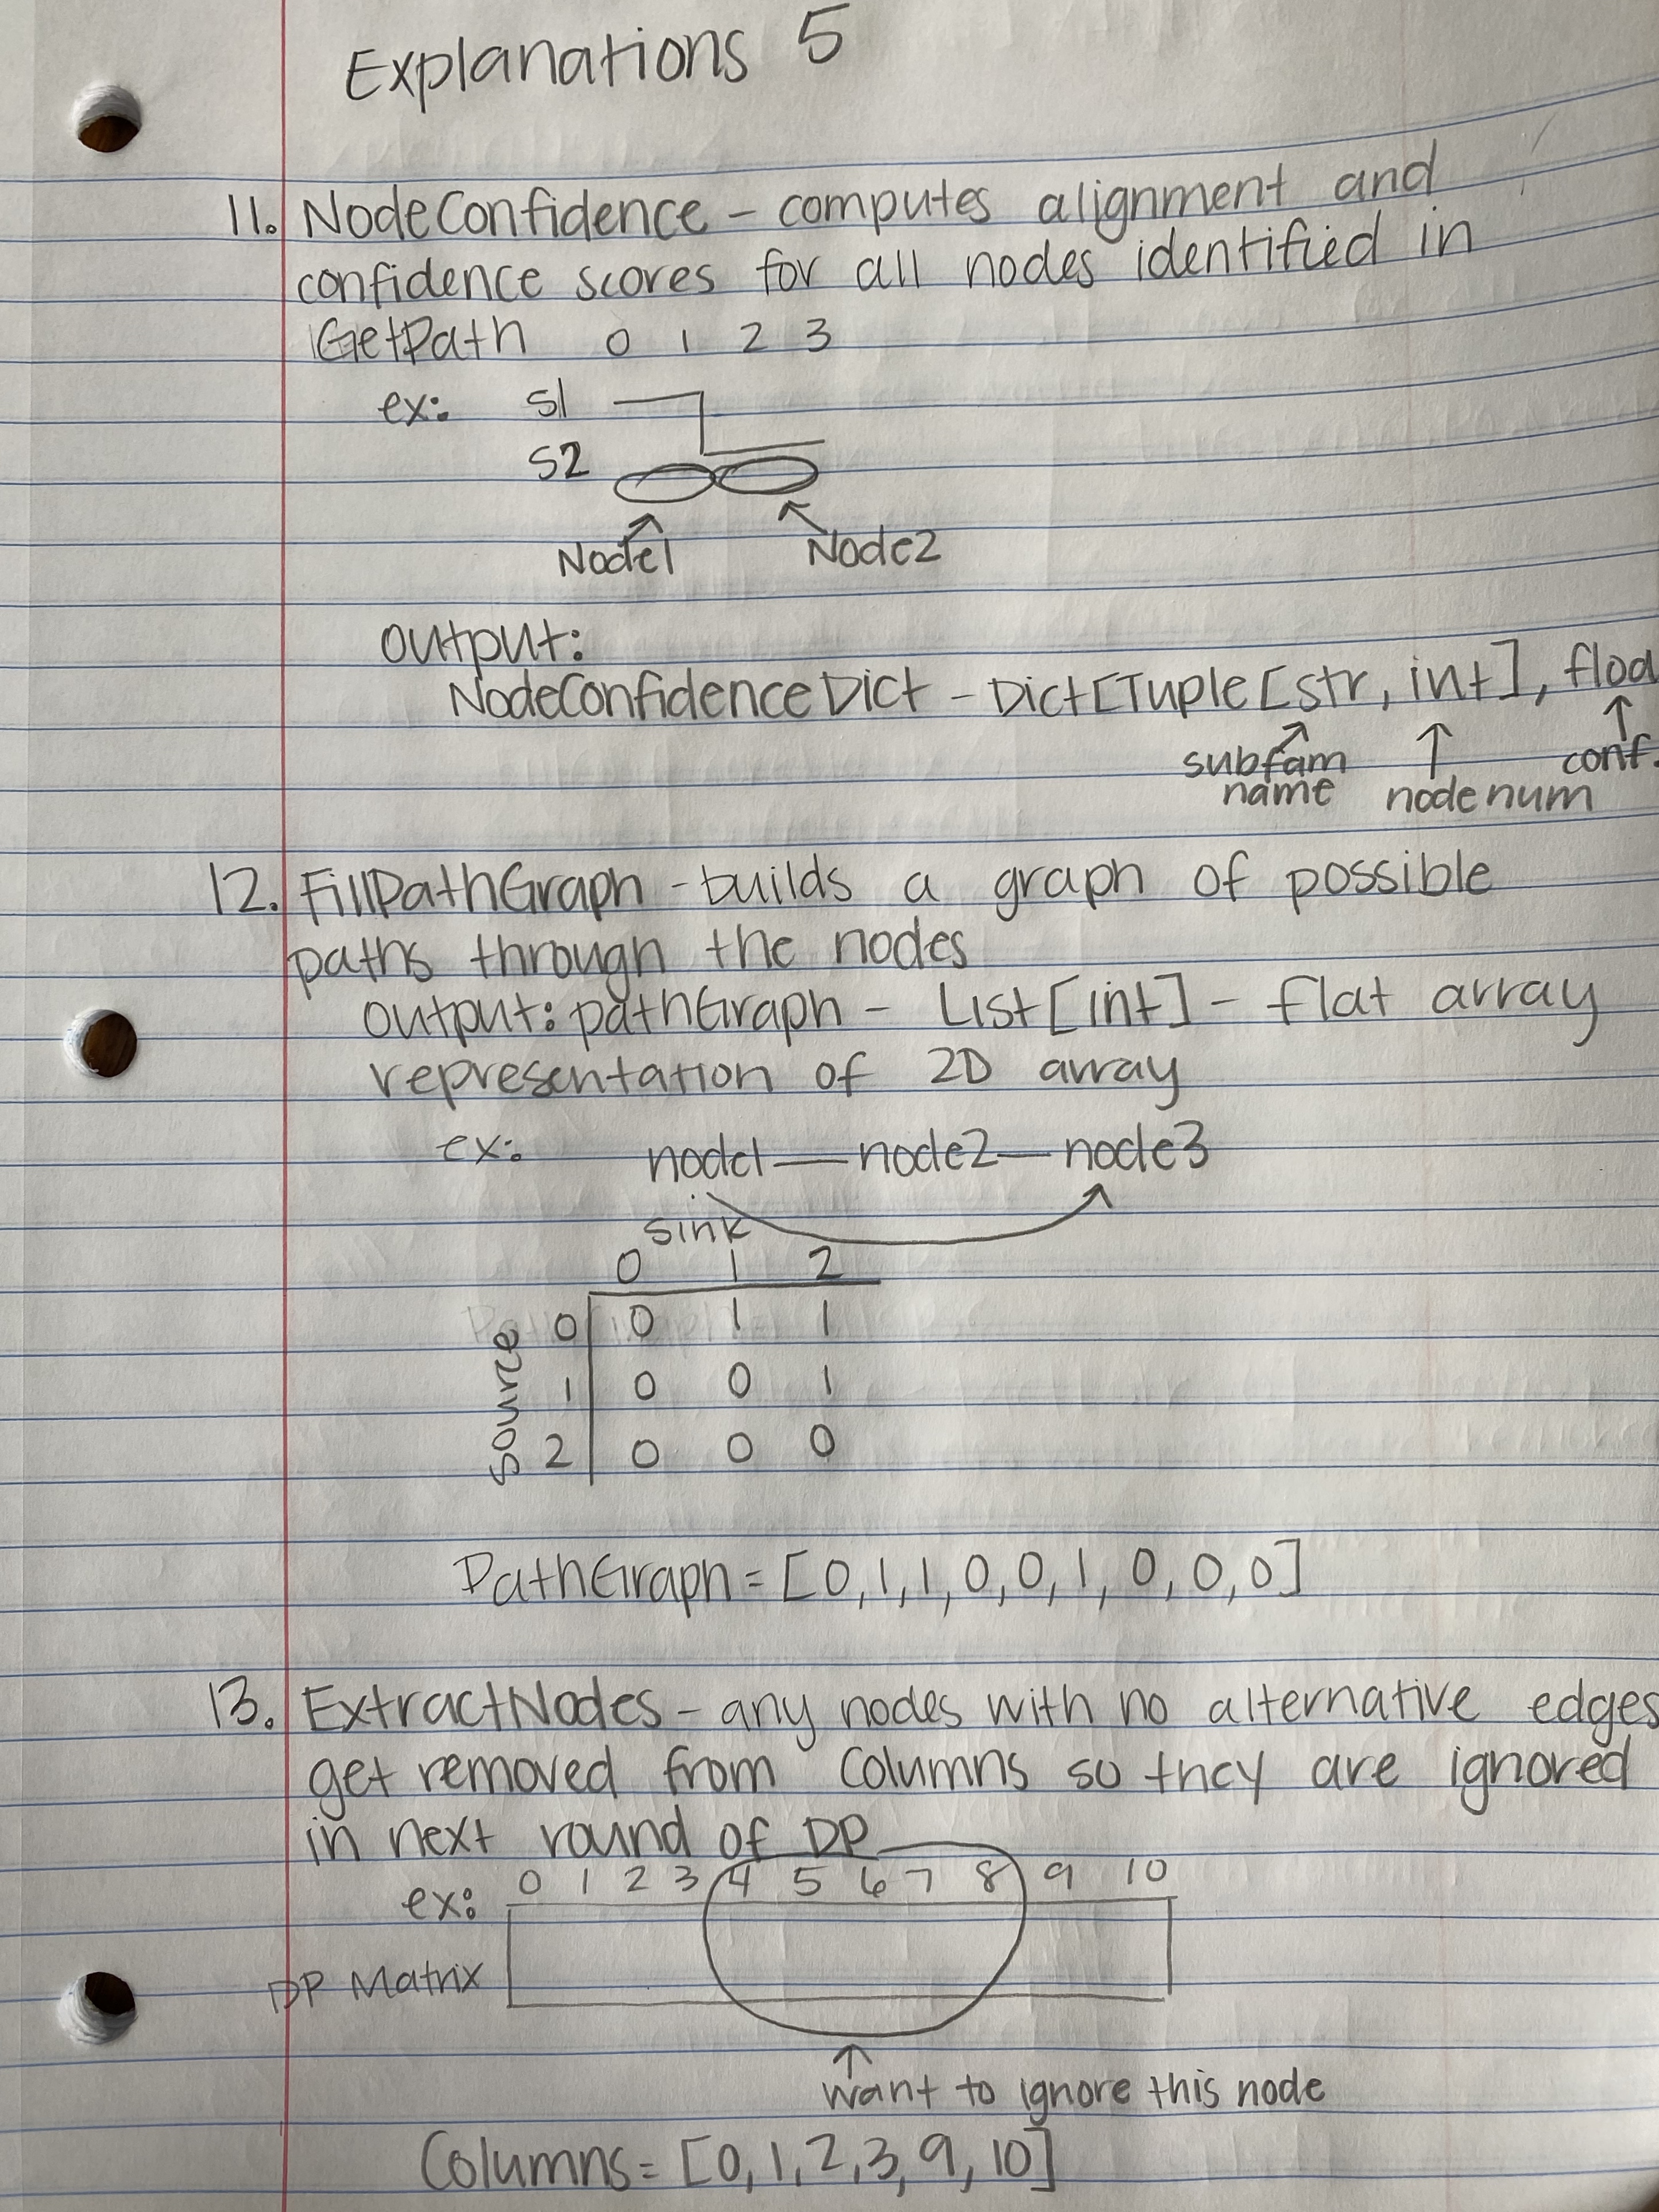 Explanations 5
11. NodeConfidence - computes alignment and
confidence scores for all nodes identified in
GetPath 0 1 2 3
ex: S1
S2
Node1 Node2
output:
NodeConfidenceDict - Dict[Tuple[str, int], floa
subfam name node num conf.
12. FillPathGraph - builds a graph of possible
paths through the nodes
output: pathGraph - List[int] - flat array
representation of 2D array
ex: node1 — node2 — node3
sink
0 1 2
source
0 0 1 1
1 0 0 1
2 0 0 0
PathGraph = [0,1,1,0,0,1,0,0,0]
13. ExtractNodes - any nodes with no alternative edges
get removed from Columns so they are ignored
in next round of DP
ex: 0 1 2 3 4 5 6 7 8 9 10
DP Matrix
want to ignore this node
Columns = [0,1,2,3,9,10]